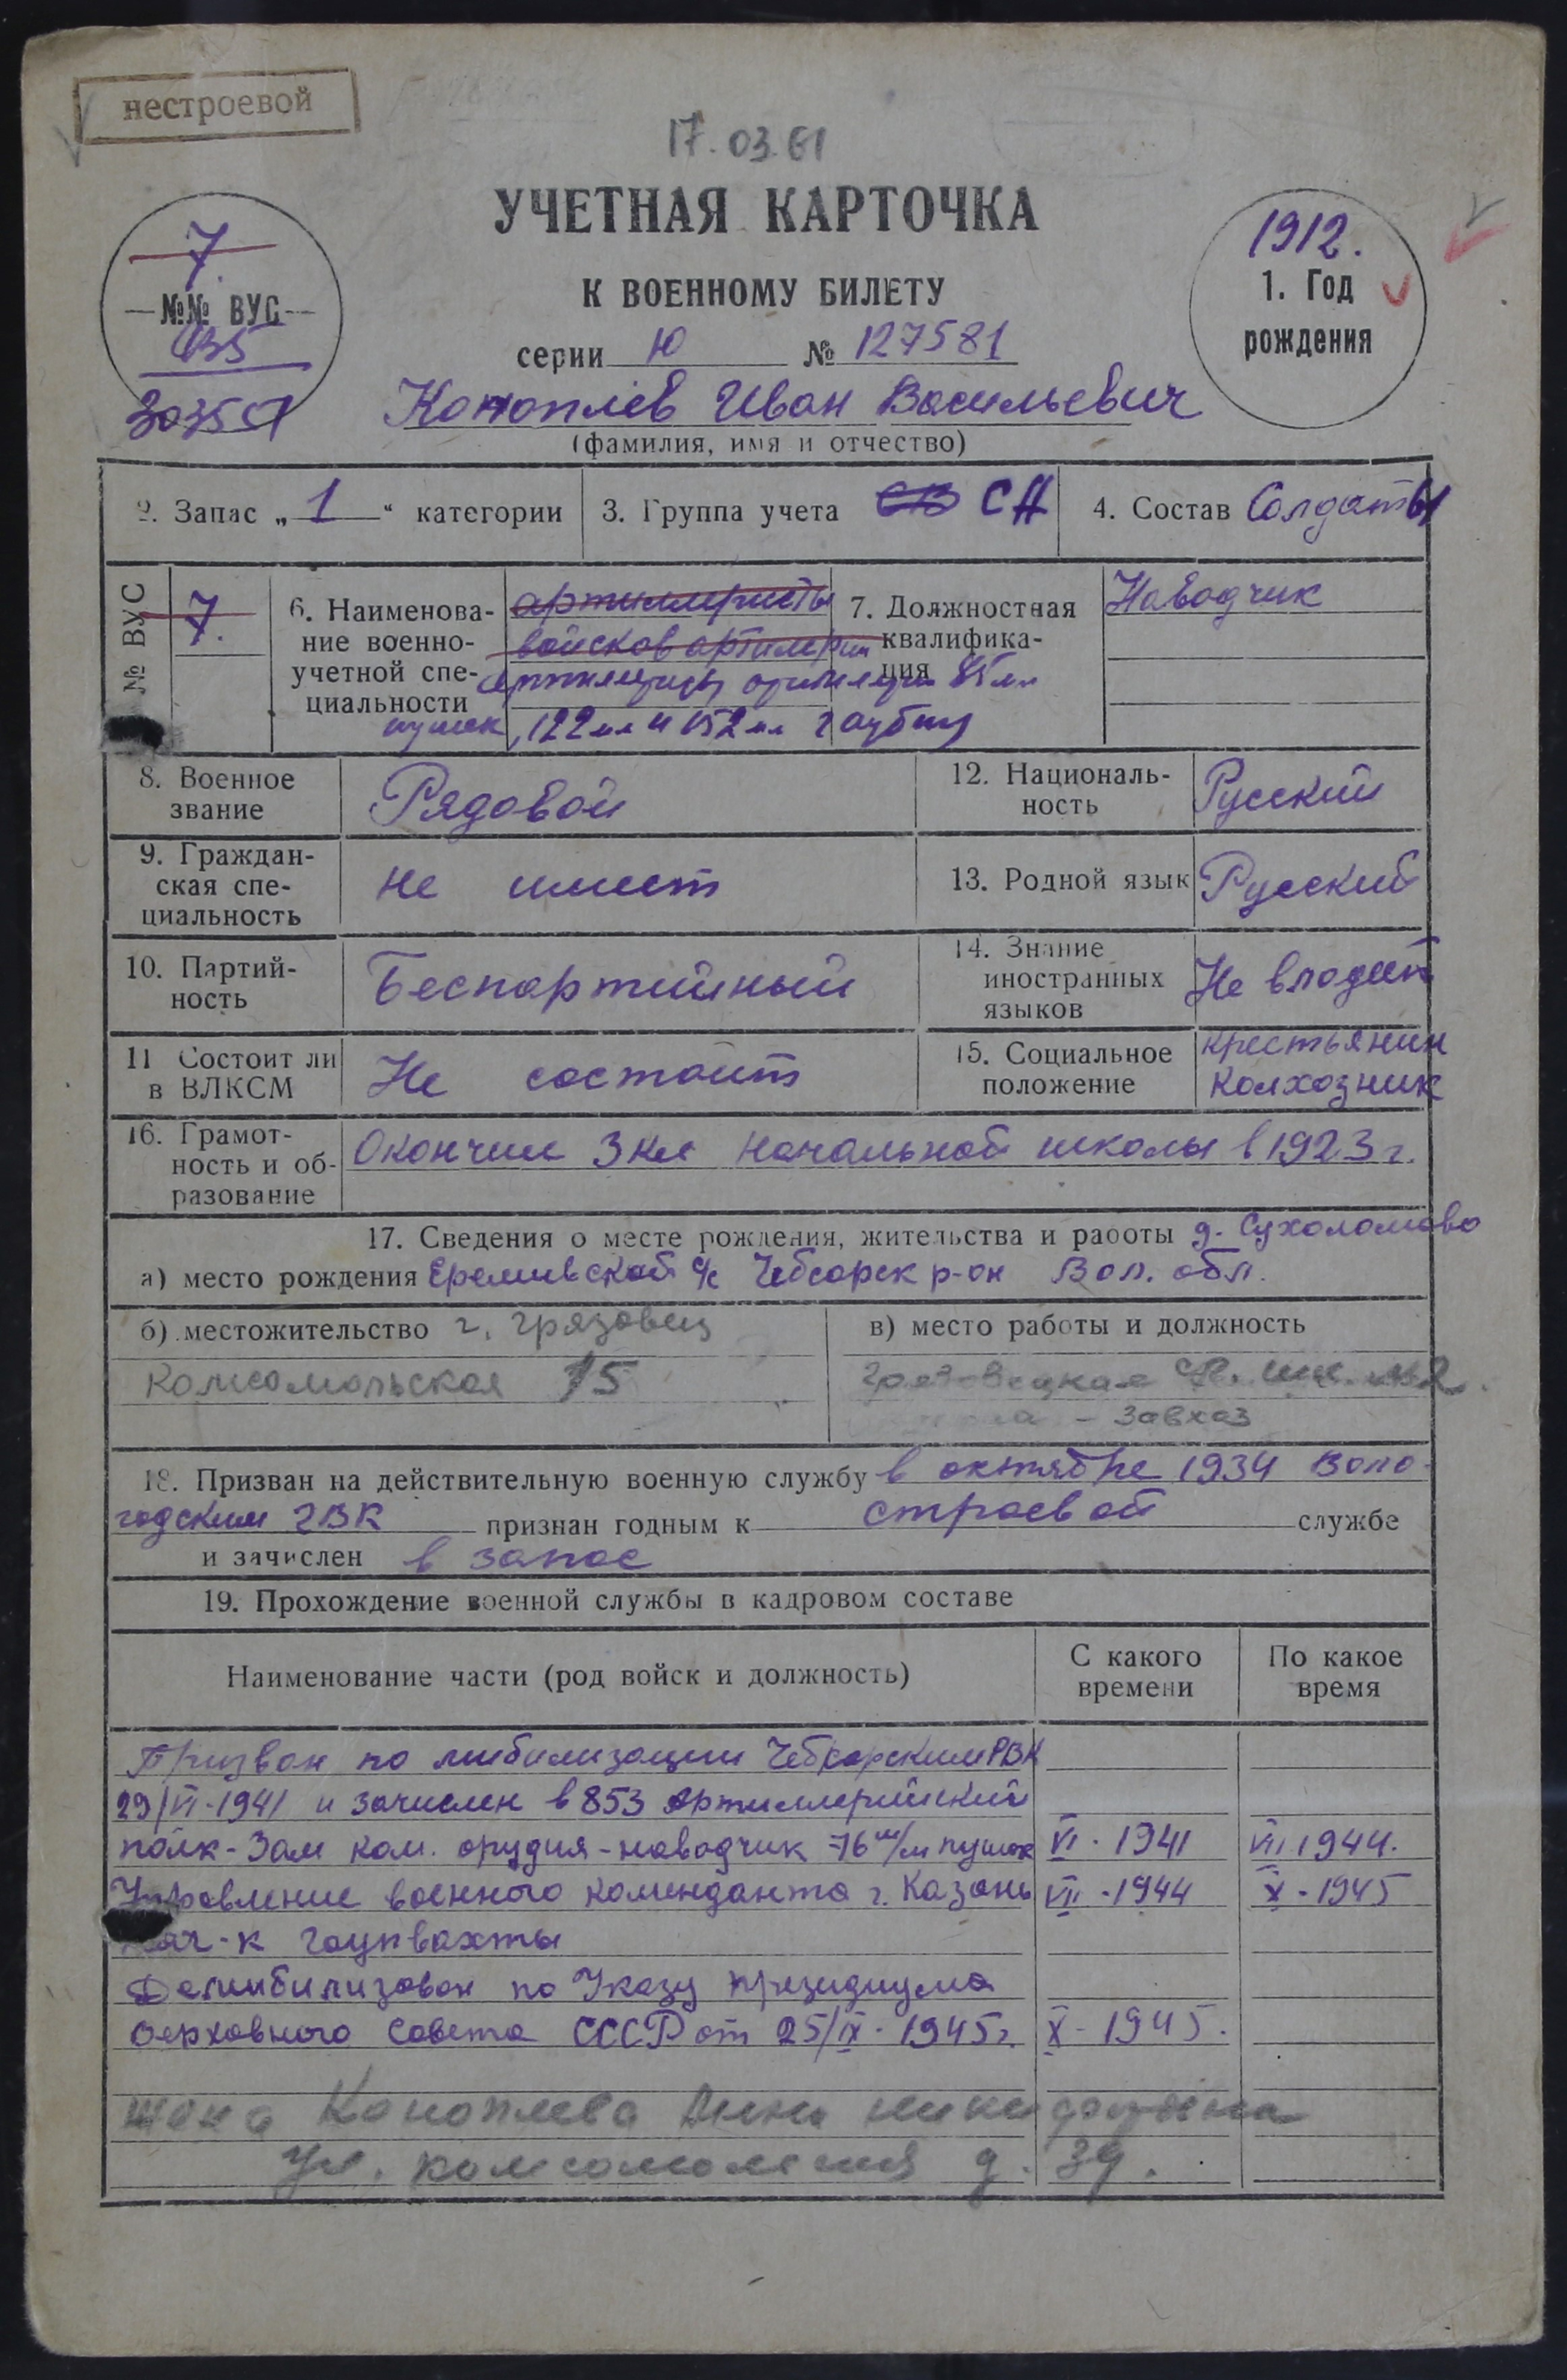 нестроевой
17.03.61
УЧЕТНАЯ КАРТОЧКА
К ВОЕННОМУ БИЛЕТУ
серии Ю № 127581
7.
№№ ВУС
435
1912.
1. Год
рождения
Коноплев Иван Васильевич
(фамилия, имя и отчество)
2. Запас „ 1 “ категории
3. Группа учета СВ СА
4. Состав Солдаты
№ ВУС
7.
6. Наименова-
ние военно-
учетной спе-
циальности
артиллеристы
войсков артилерии
85 мм
пушек, 122 мм и 152 мм гаубиц
7. Должностная
квалифика-
ция
Наводчик
8. Военное
звание
Рядовой
12. Националь-
ность
Русский
9. Граждан-
ская спе-
циальность
не имеет
13. Родной язык
Русский
10. Партий-
ность
Беспартийный
14. Знание
иностранных
языков
Не владеет
11 Состоит ли
в ВЛКСМ
Не состоит
15. Социальное
положение
крестьянин
колхозник
16. Грамот-
ность и об-
разование
Окончил 3 кл начальной школы в 1923 г.
17. Сведения о месте рождения, жительства и работы д. Сухоломово
а) место рождения с/с Чебсарск р-он Вол. обл.
б) местожительство г. Грязовец
Комсомольская 15
в) место работы и должность
Грязовецкая
- завхоз
18. Призван на действительную военную службу в октябре 1934 Воло-
годским ГВК признан годным к строевой службе
и зачислен в запас
19. Прохождение военной службы в кадровом составе
Наименование части (род войск и должность)
С какого
времени
По какое
время
Призван по мибилизации Чебсарским РВК
29/VI-1941 и зачислен в 853 артиллерийский
полк - Зам ком. орудия - наводчик 76 м/м пушек VI - 1941 VII 1944.
Управление военного коменданта г. Казань VII - 1944 X - 1945
Нач-к гаупвахты
Демибилизован по Указу президиума
Верховного Совета СССР от 25/IX - 1945 г. X - 1945.
жена Коноплева
Ул. д. 39.